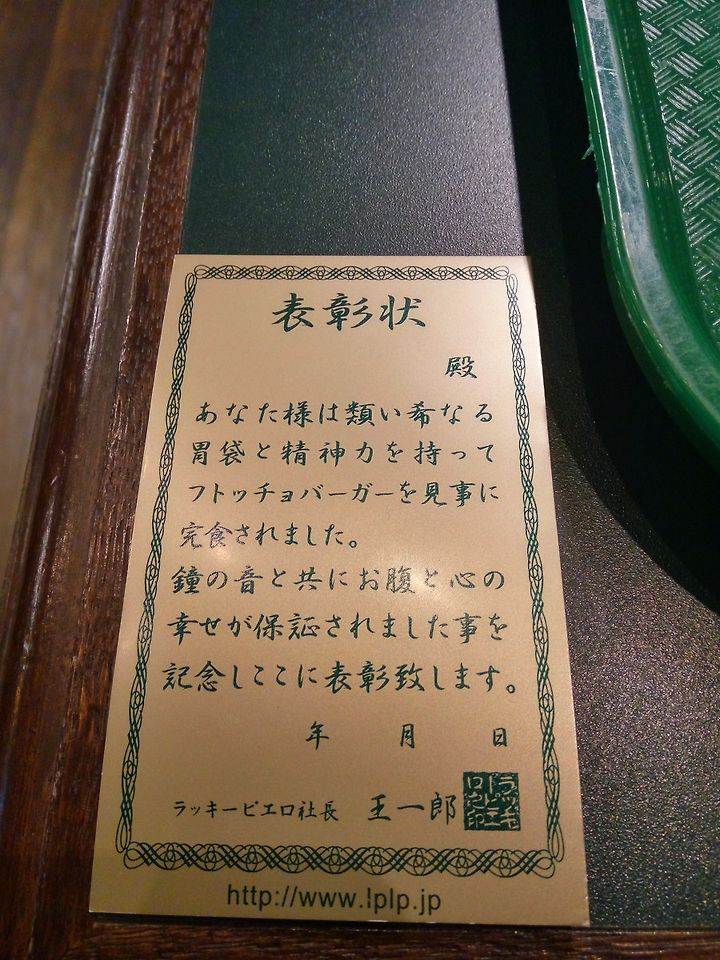 表彰状
殿
あなた様は類い希なる
胃袋と精神力を持って
フトッチョバーガーを見事に
完食されました。
鐘の音と共にお腹と心の
幸せが保証されました事を
記念しここに表彰致します。
年 月 日
ラッキーピエロ社長 王一郎
http://www.lplp.jp